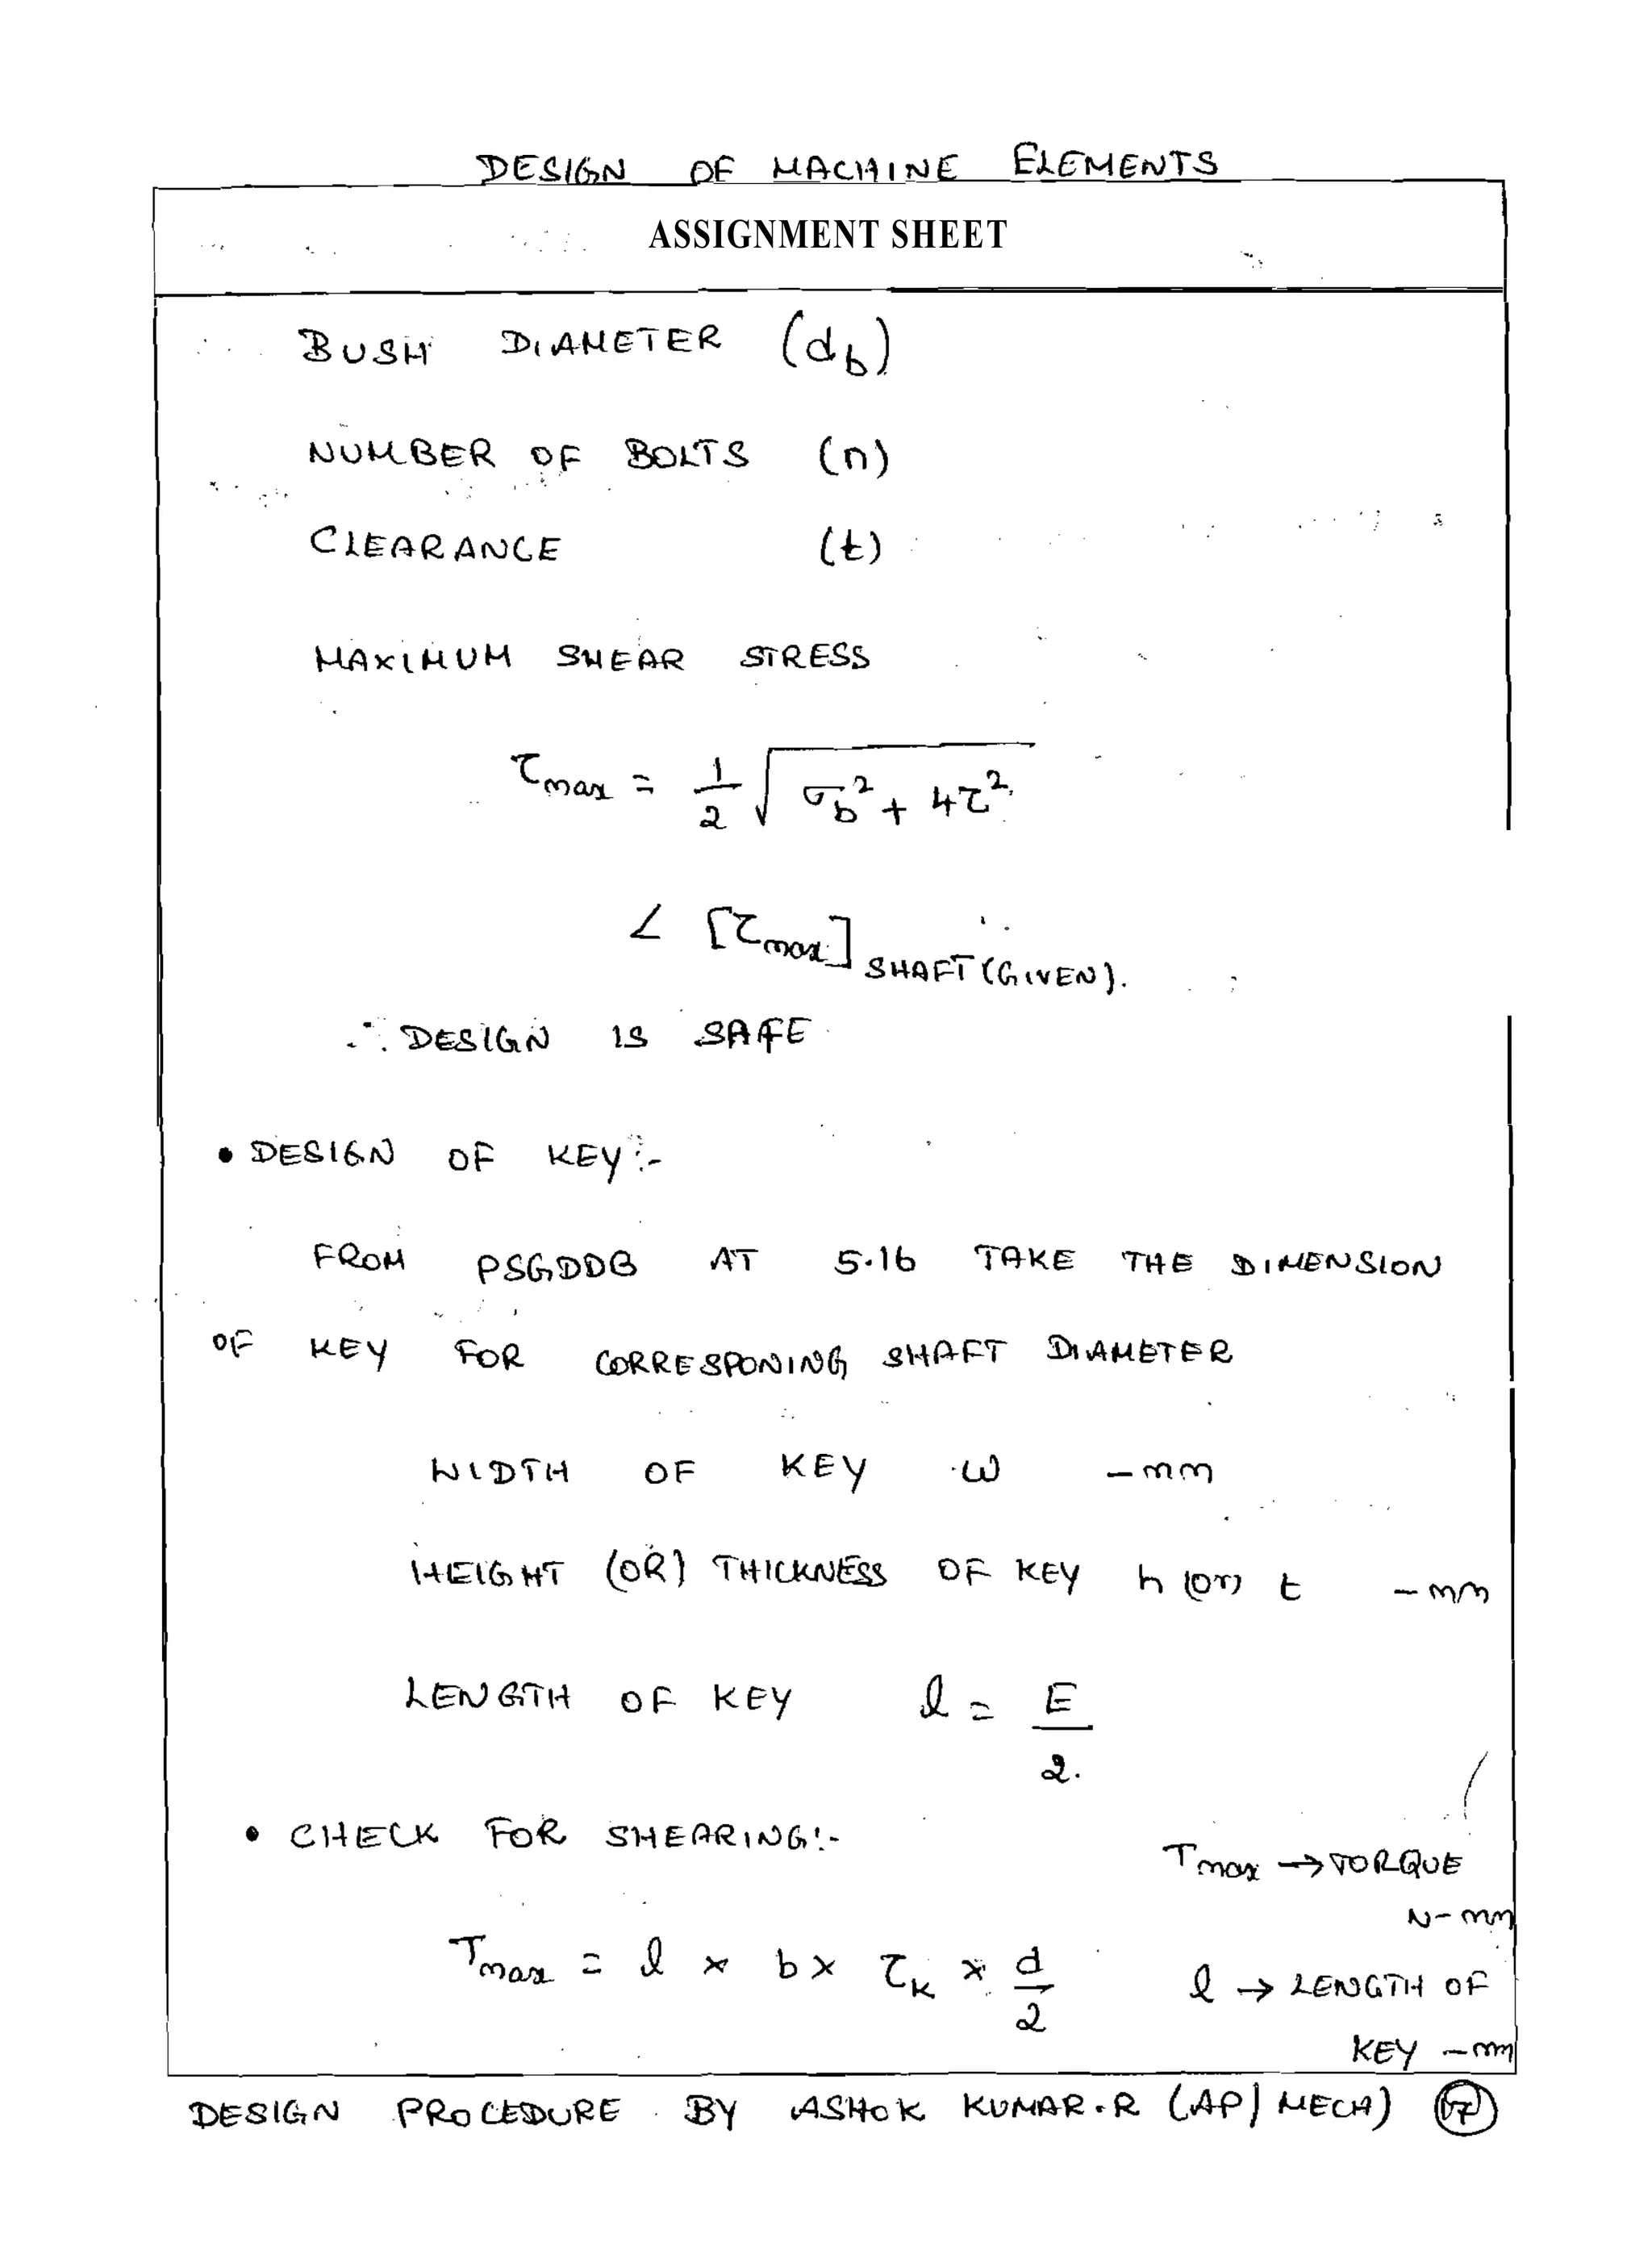 DESIGN OF MACHINE ELEMENTS
ASSIGNMENT SHEET
BUSH DIAMETER (d_b)
NUMBER OF BOLTS (n)
CLEARANCE (t)
MAXIMUM SHEAR STRESS
τ_max = 1/2 √(σ_b² + 4τ²)
< [τ_max] SHAFT (GIVEN).
∴ DESIGN IS SAFE
• DESIGN OF KEY:-
FROM PSGDDB AT 5.16 TAKE THE DIMENSION
OF KEY FOR CORRESPONING SHAFT DIAMETER
WIDTH OF KEY w – mm
HEIGHT (OR) THICKNESS OF KEY h (or) t – mm
LENGTH OF KEY l = E/2.
• CHECK FOR SHEARING:-
T_max → TORQUE
N-mm
T_max = l × b × τ_k × d/2
l → LENGTH OF
KEY – mm
DESIGN PROCEDURE BY ASHOK KUMAR.R (AP/MECH)